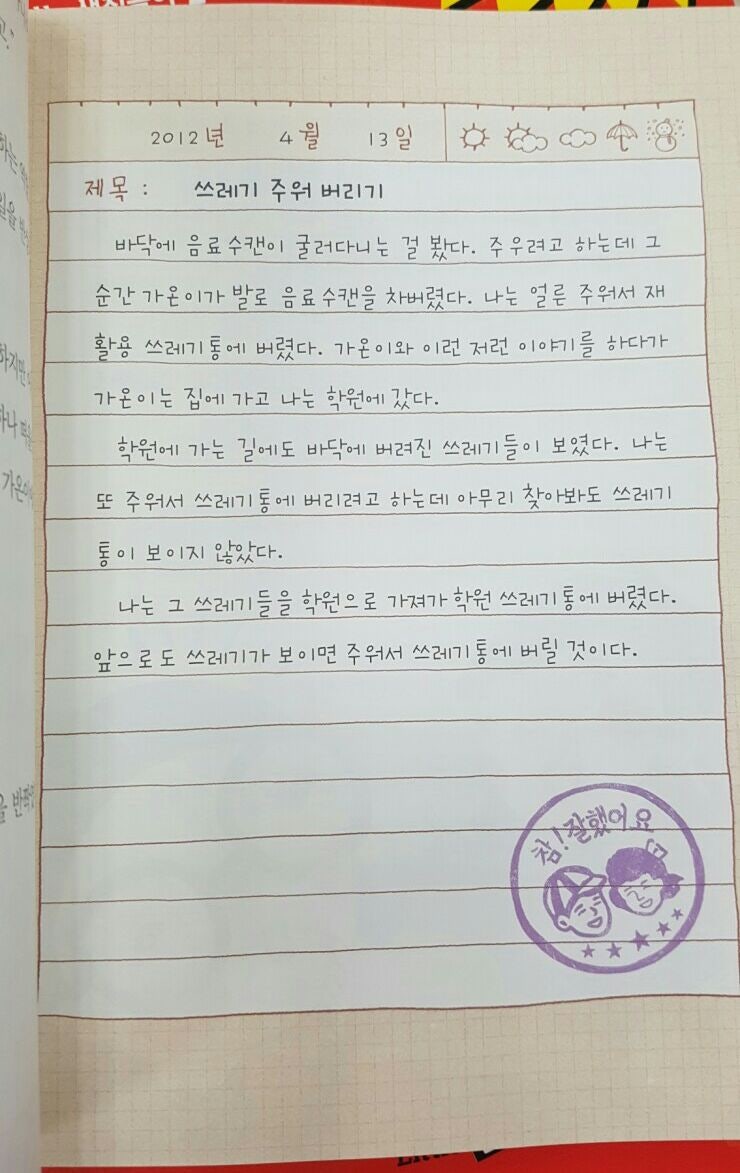 2012년 4월 13일
제목 : 쓰레기 주워 버리기
바닥에 음료수캔이 굴러다니는 걸 봤다. 주우려고 하는데 그
순간 가온이가 발로 음료수캔을 차버렸다. 나는 얼른 주워서 재
활용 쓰레기통에 버렸다. 가온이와 이런 저런 이야기를 하다가
가온이는 집에 가고 나는 학원에 갔다.
학원에 가는 길에도 바닥에 버려진 쓰레기들이 보였다. 나는
또 주워서 쓰레기통에 버리려고 하는데 아무리 찾아봐도 쓰레기
통이 보이지 않았다.
나는 그 쓰레기들을 학원으로 가져가 학원 쓰레기통에 버렸다.
앞으로도 쓰레기가 보이면 주워서 쓰레기통에 버릴 것이다.
참! 잘했어요
하지만
가온이